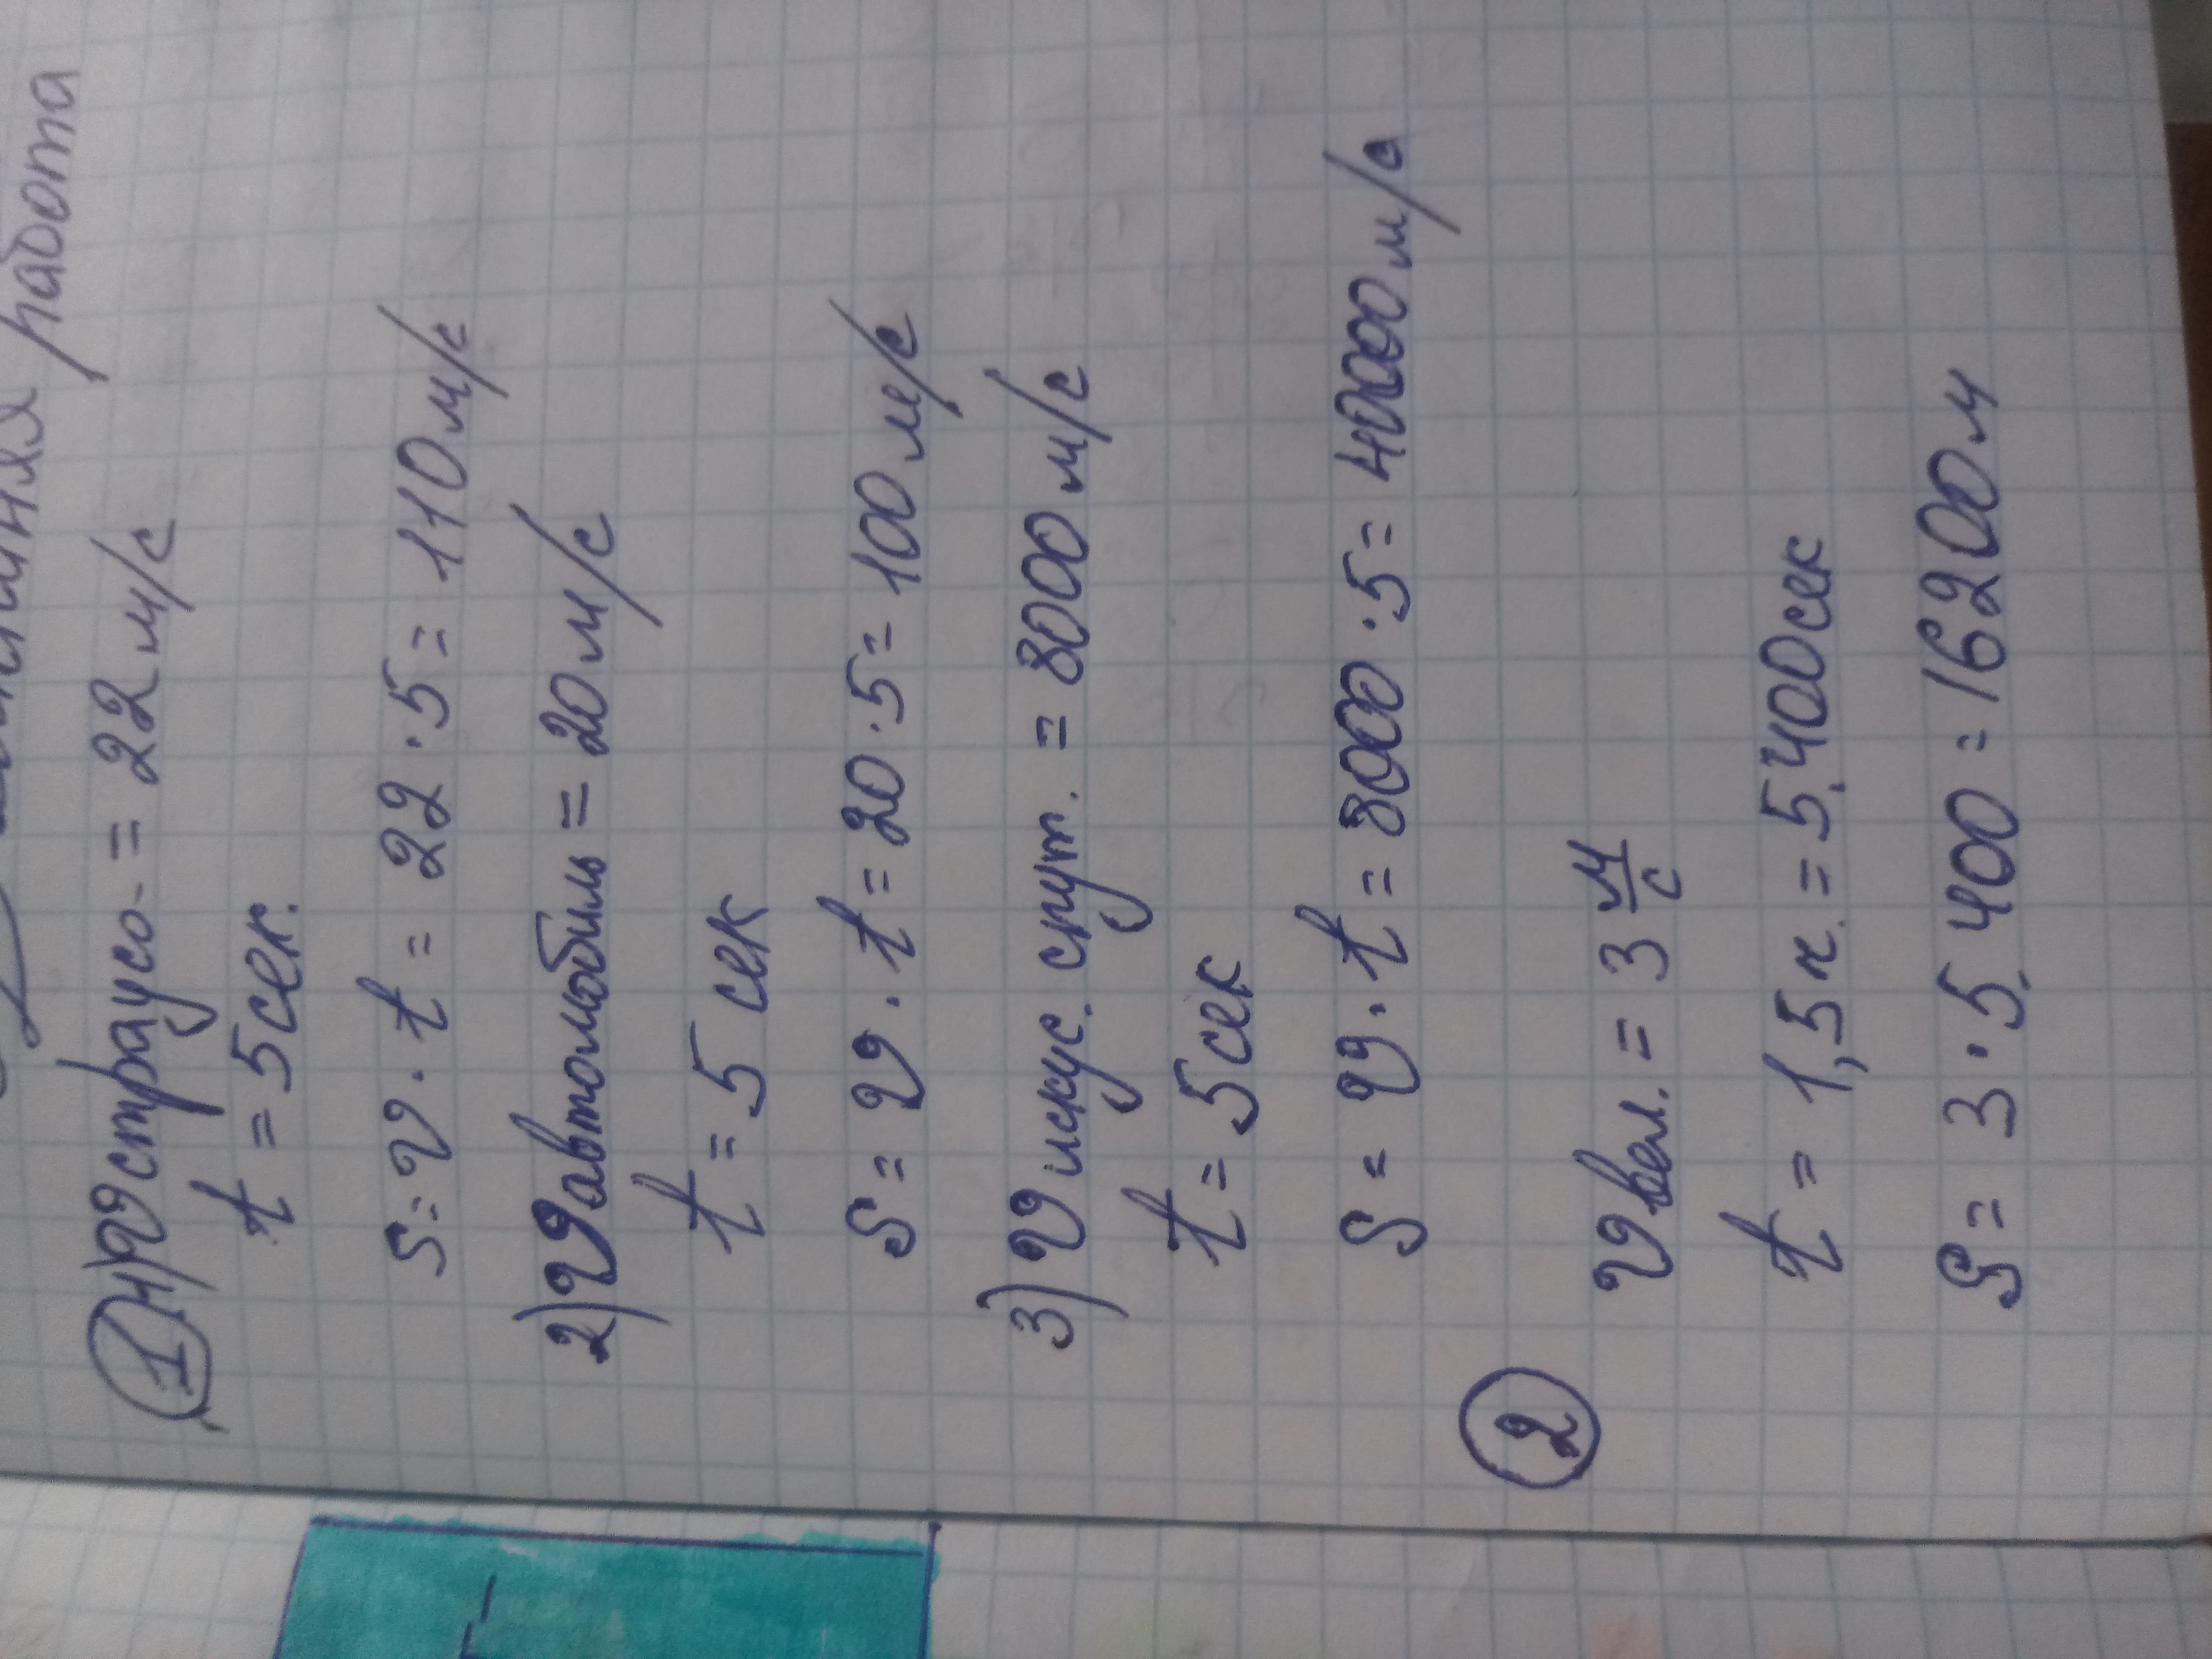 работа
① 1) υ страуса = 22 м/с
t = 5 сек.
S = υ · t = 22 · 5 = 110 м/с
2) υ автомобиль = 20 м/с
t = 5 сек
S = υ · t = 20 · 5 = 100 м/с
3) υ искус. спут. = 8000 м/с
t = 5 сек
S = υ · t = 8000 · 5 = 40000 м/с
②
υ вел. = 3 м/с
t = 1,5 ч. = 5.400 сек
S = 3 · 5.400 = 16200 м